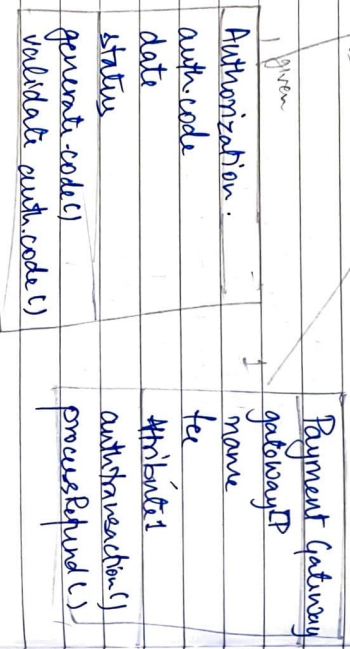 given
Authorization.
auth.code
date
status
generate-code()
validate auth.code()
1
Payment Gateway
gatewayIP
name
fee
Attribute1
authTransaction()
processRefund()